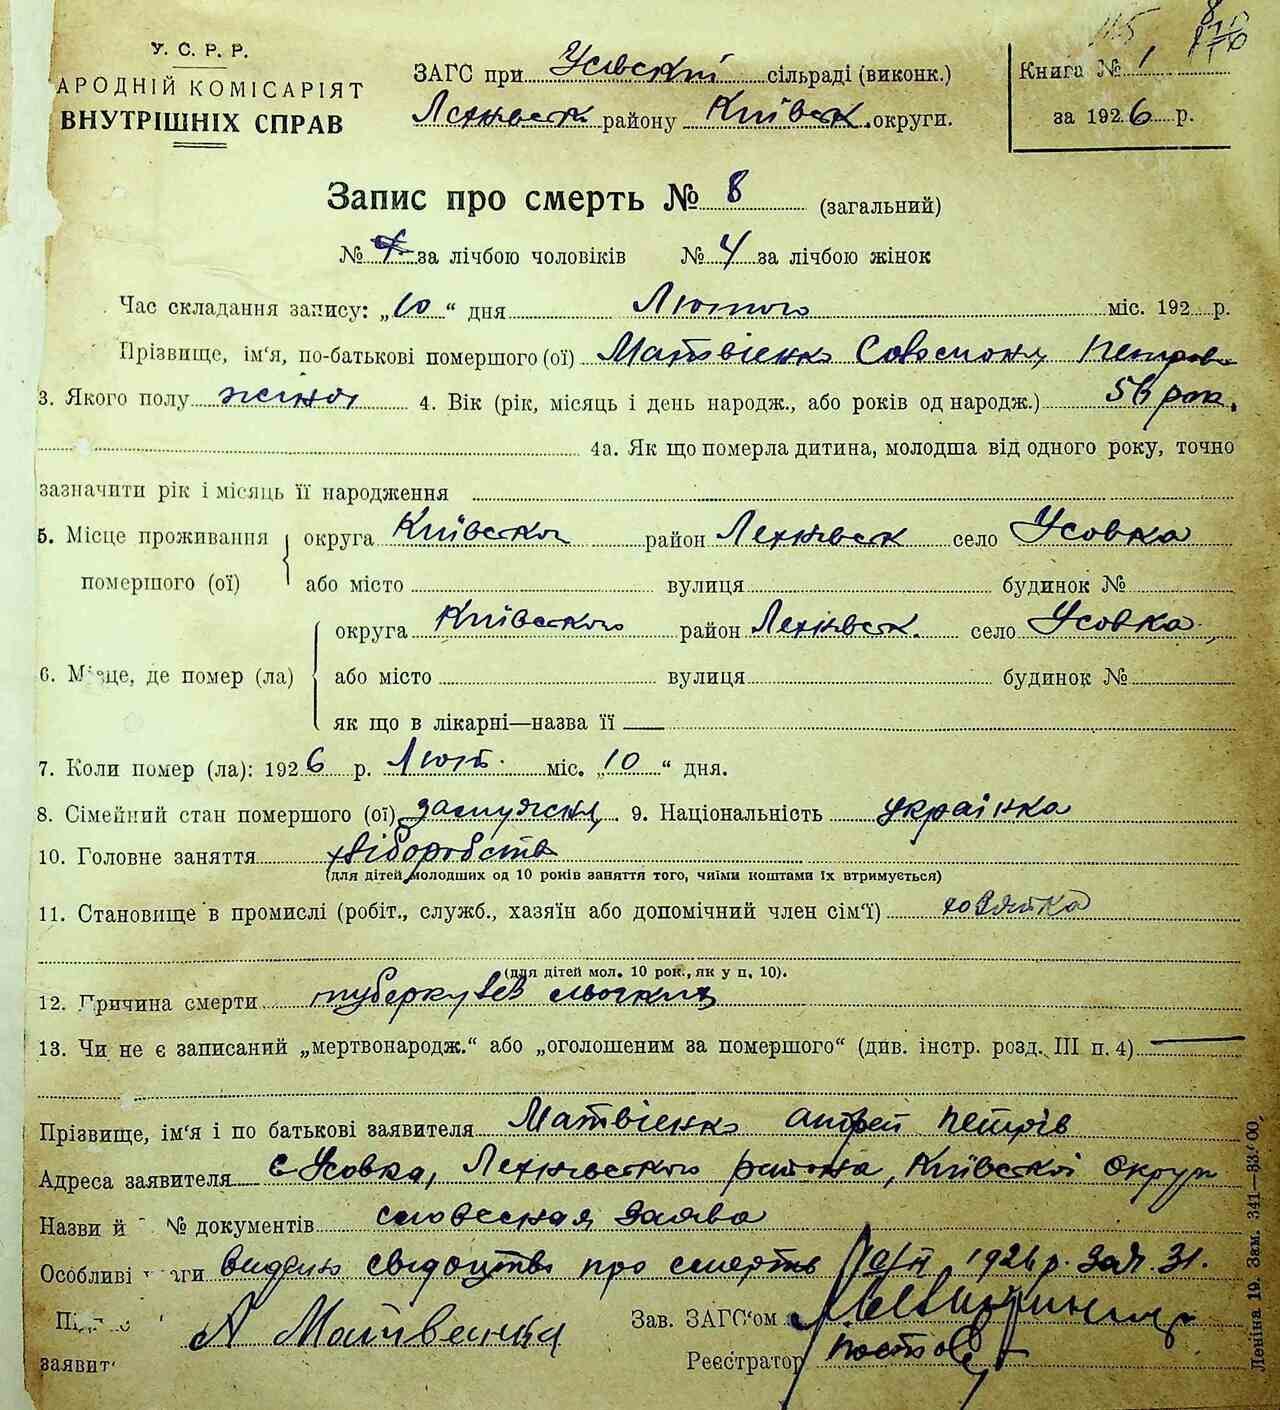 У. С. Р. Р.
АРОДНІЙ КОМІСАРІЯТ
ВНУТРІШНІХ СПРАВ
ЗАГС при Усовскій сільраді (виконк.)
Лехнівськ району Київськ. округи.
Книга № 1
за 1926 р.
Запис про смерть № 8 (загальний)
№ 4 за лічбою чоловіків № 4 за лічбою жінок
Час складання запису: „10“ дня Лютого міс. 192 р.
Прізвище, ім'я, по-батькові помершого (ої) Матвіенко Петров
3. Якого полу жіноч 4. Вік (рік, місяць і день народж., або років од народж.) 56 рок.
4а. Як що померла дитина, молодша від одного року, точно
зазначити рік і місяць її народження
5. Місце проживання округа Київской район Лехнівськ село Усовка
помершого (ої) або місто вулиця будинок №
округа Київского район Лехнівськ. село Усовка
6. Місце, де помер (ла) або місто вулиця будинок №
як що в лікарні—назва її
7. Коли помер (ла): 1926 р. Лют. міс. „10“ дня.
8. Сімейний стан помершого (ої) замужня 9. Національність українка
10. Головне заняття хліборобств
(для дітей молодших од 10 років заняття того, чиїми коштами їх втримується)
11. Становище в промислі (робіт., служб., хазяїн або допомічний член сім'ї) хозяйка
(для дітей мол. 10 рок., як у п. 10).
12. Причина смерти туберкульоз
13. Чи не є записаний „мертвонародж.“ або „оголошеним за помершого“ (див. інстр. розд. III п. 4)
Прізвище, ім'я і по батькові заявителя Матвіенко Андрей Петрів
Адреса заявителя с Усовка, Лехнівського района, Київської Округи
Назви й № документів словесная заява
Особливі ваги видано свідоцтво про смерть 10/II 1926 р. за № 31.
А Матвеенко Зав. ЗАГС'ом
заявит Реєстратор
Леніна 19. Зам. 341—